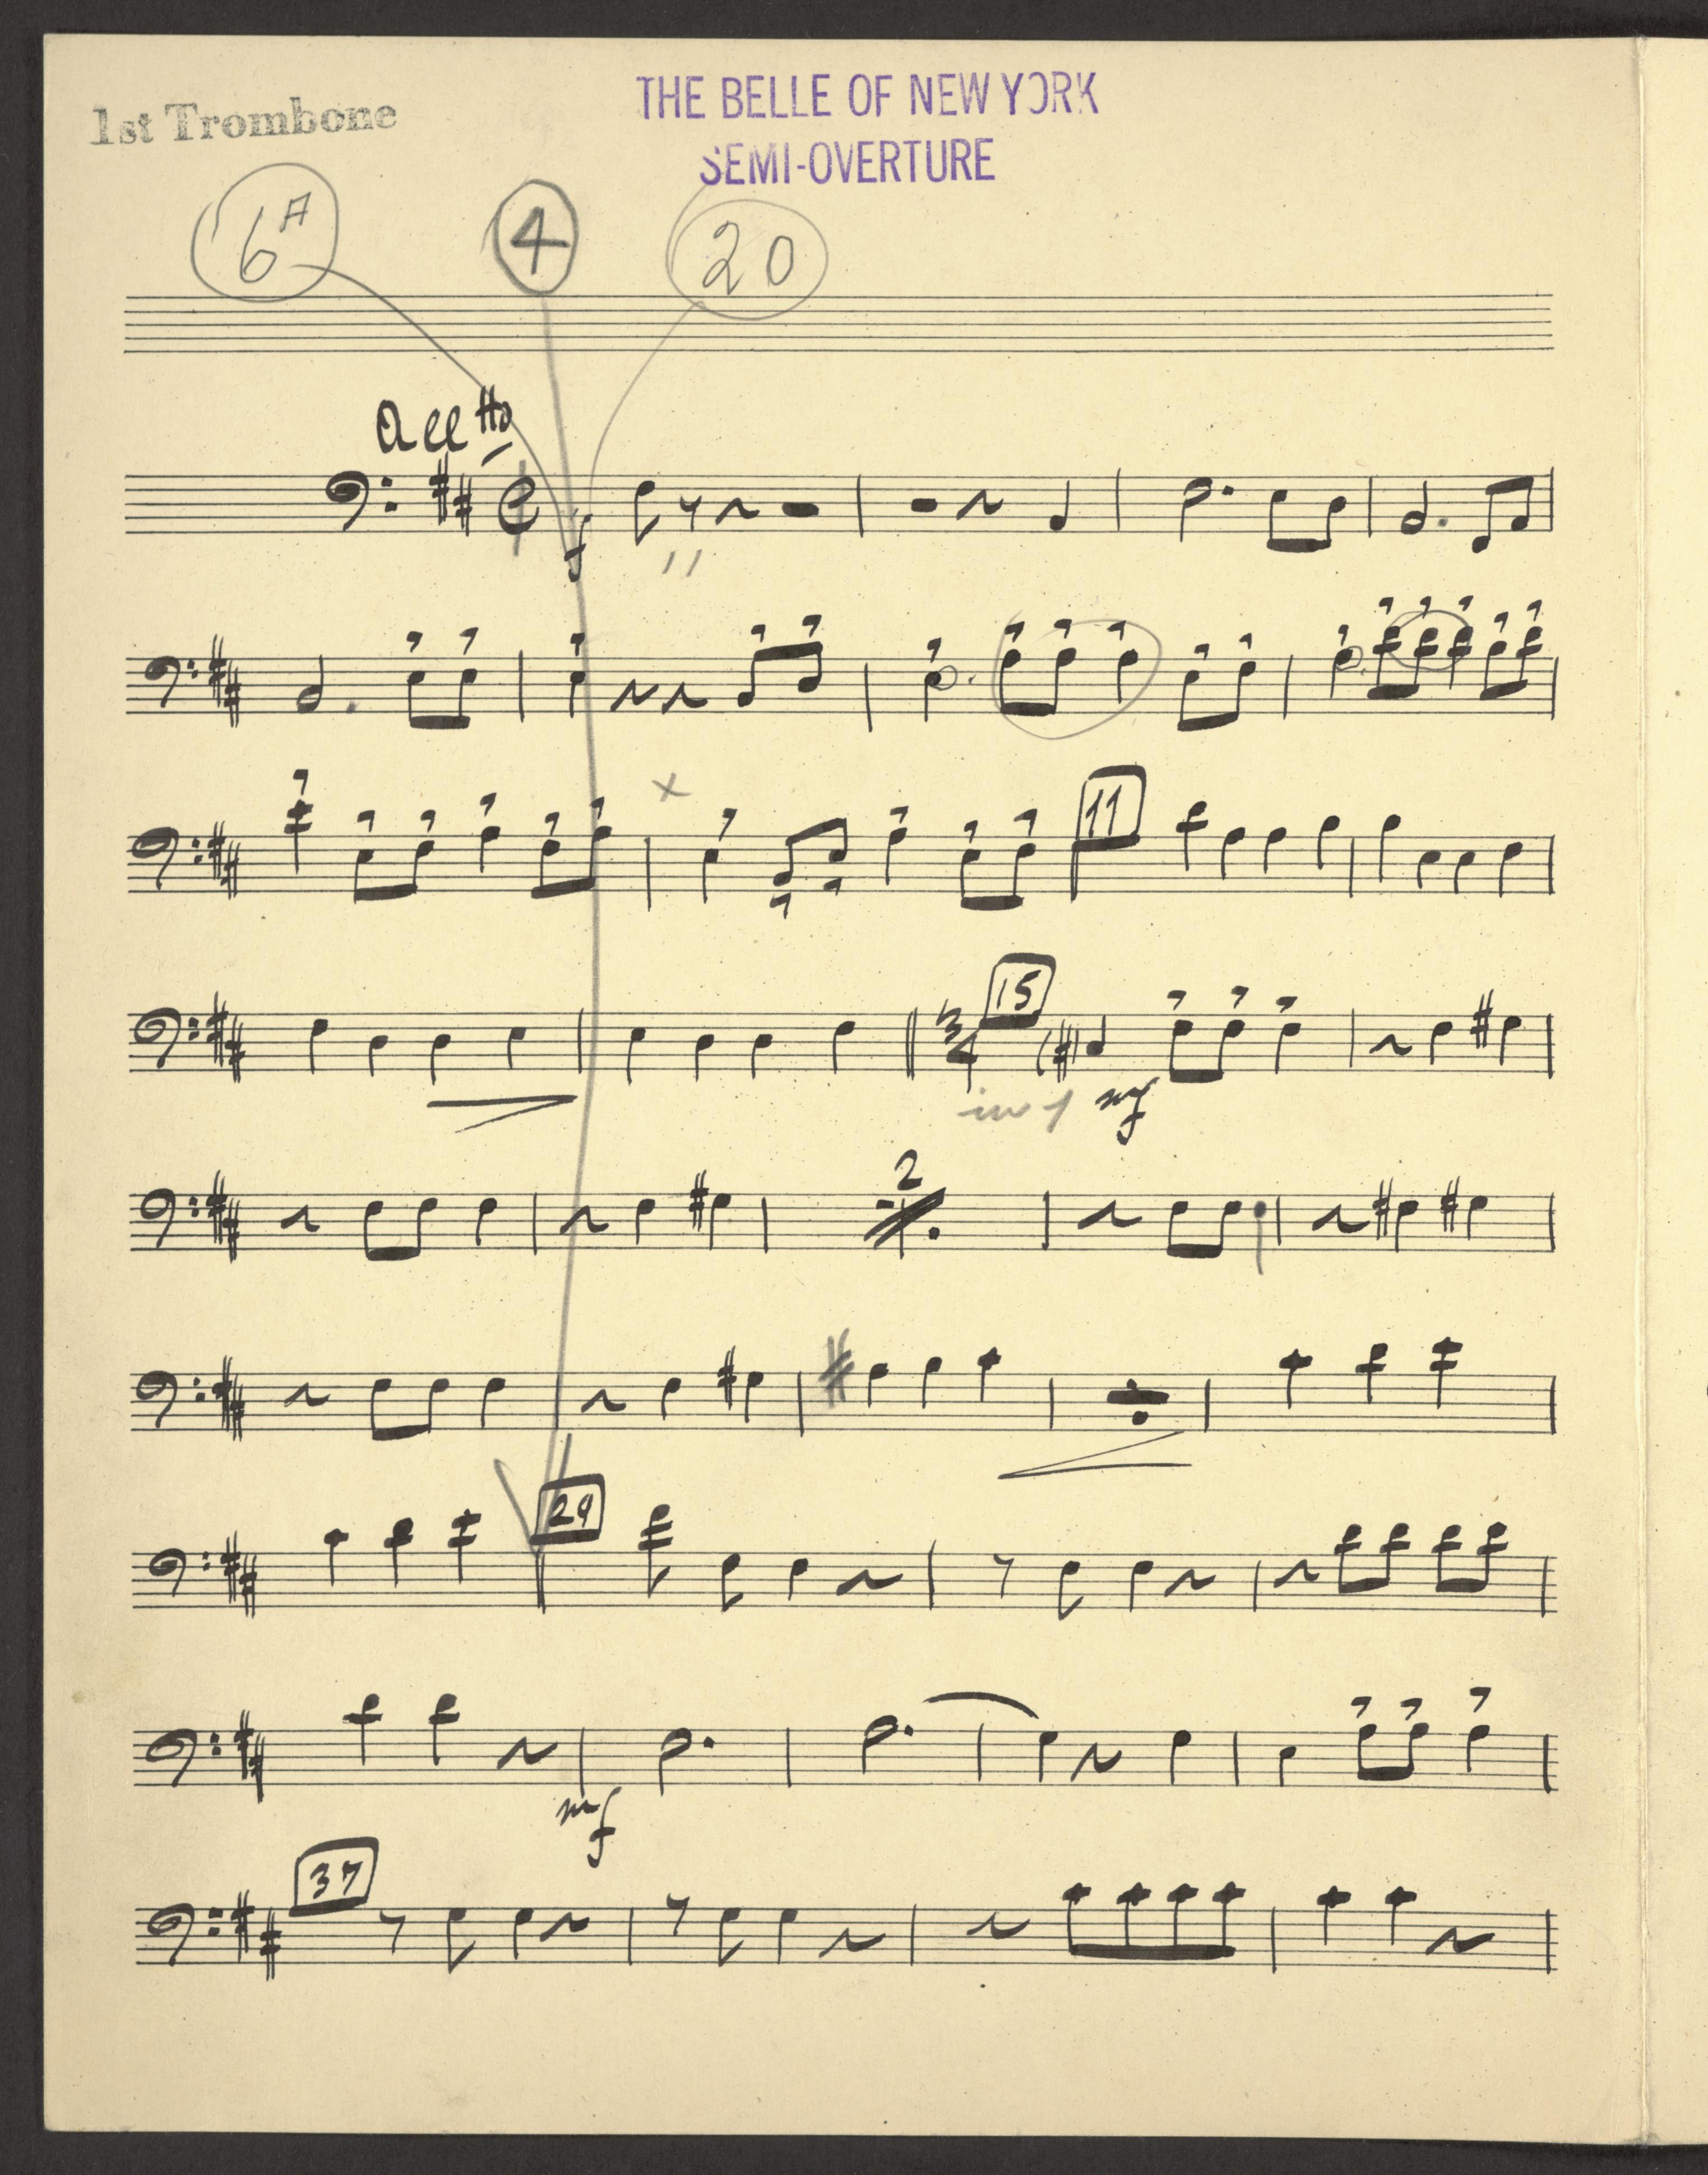 1st Trombone
THE BELLE OF NEW YORK
SEMI-OVERTURE
6A 4 20
Alltto
f
11
15
3
4
in 1 mf
2
29
mf
37